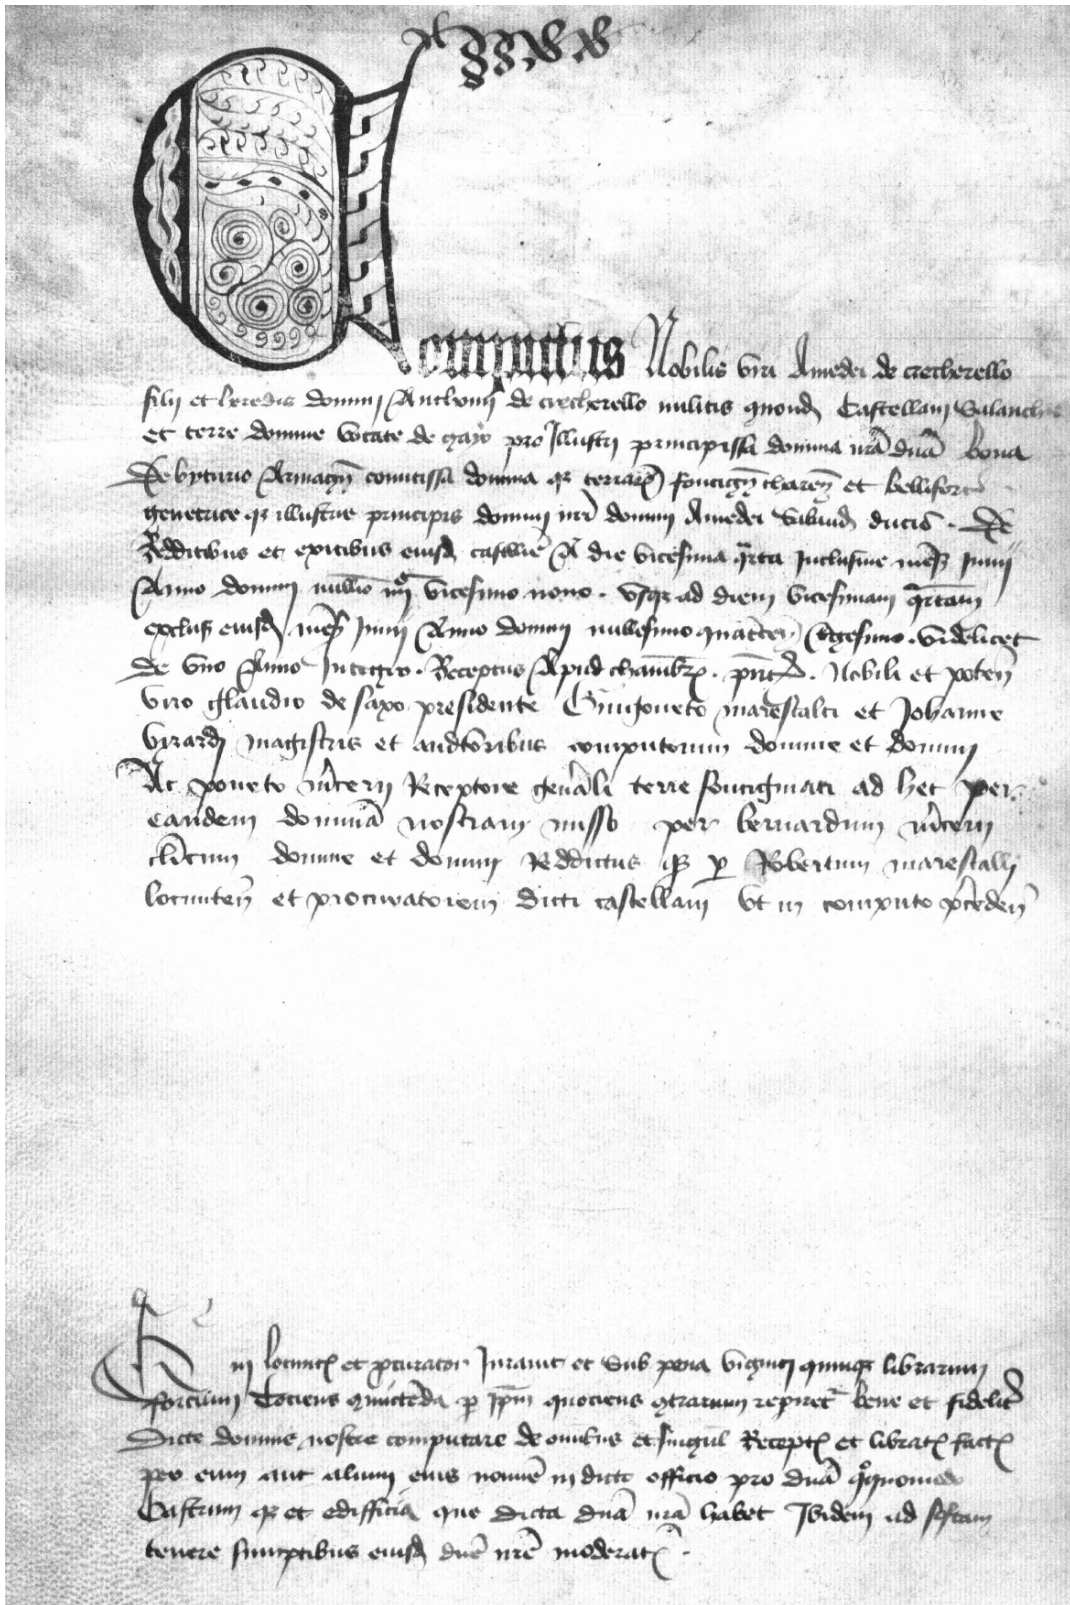 Computus Nobilis viri Amedei de crecherello
filij et heredis domini Anthonij de crecherello militis quond Castellani Salanch
et terre domine vocate de gayo pro Illustri principissa domina nra dna bona
De byturio Armagn comitissa domina qz terrar foucign charen et bellifort
genetrice qz illustris principis domini nri domini Amedei Sabaud ducis. De
Redditibus et exitibus eiusd castllie A die vicesima qrta Inclusive mens Junij
Anno domini millio iiij vicesimo nono. usqz ad diem vicesimam qrtam
exclus eiusd mens Junij Anno domini millesimo quatcen tgesimo. videlicet
de uno Anno Integro. Receptus Apud chambr. pnt. Nobili et poten
viro glaudio de saxo presidente Guigoneto marescalci et Johanne
lyrardi magistris et auditoribus computorum domine et domini
Ac poneto mcerij Receptore genali terre foucigniaci ad hec per
eandem dominam nostram misso per bernardum mcerij
clicum domine et domini Redditus qz p Robertum marescalli
locumten et procuratorem dicti castellani Ut in computo pceden
Qui locumt et pcurator Juravit et sub pena viginti quinqz librarum
fortium tociens comictenda p ipm quociens contrarium repiret bene et fidelit
Dicte domine nostre computare de omibus et singul Recept et librat fact
per eum aut alium eius nomie in dicto officio pro dna qoquomodo
Castrum qz et edifficia que dicta dna nra habet Ibidem ad sistam
tenere sumptibus eiusd dne nre moderat.